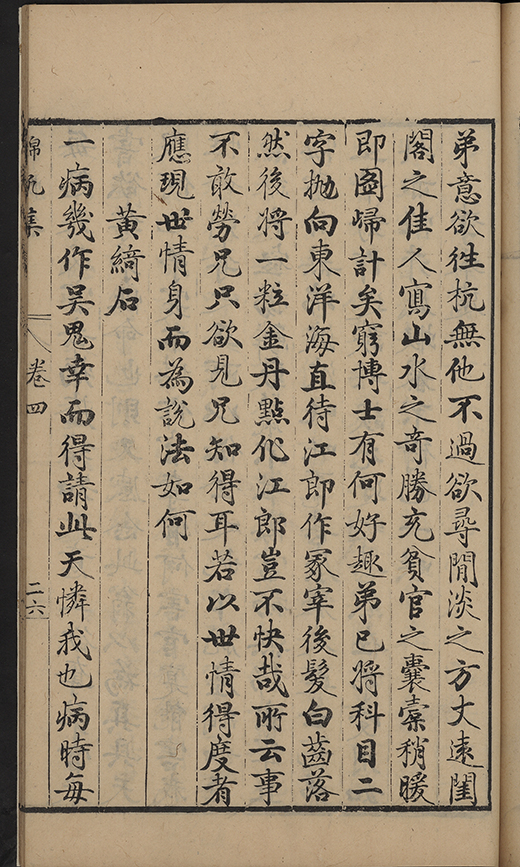 弟意欲徃杭無他不過欲尋閒淡之方丈遠閨
閣之佳人寫山水之奇勝充貧官之囊橐稍暖
即圖歸計矣窮博士有何好趣弟已將科目二
字抛向東洋海直待江郎作冢宰後髮白齒落
然後將一粒金丹點化江郎豈不快哉所云事
不敢勞兄只欲見兄知得耳若以世情得度者
應現世情身而為說法如何
黃綺石
一病幾作吴鬼幸而得請此天憐我也病時每
錦帆集
卷四
二六